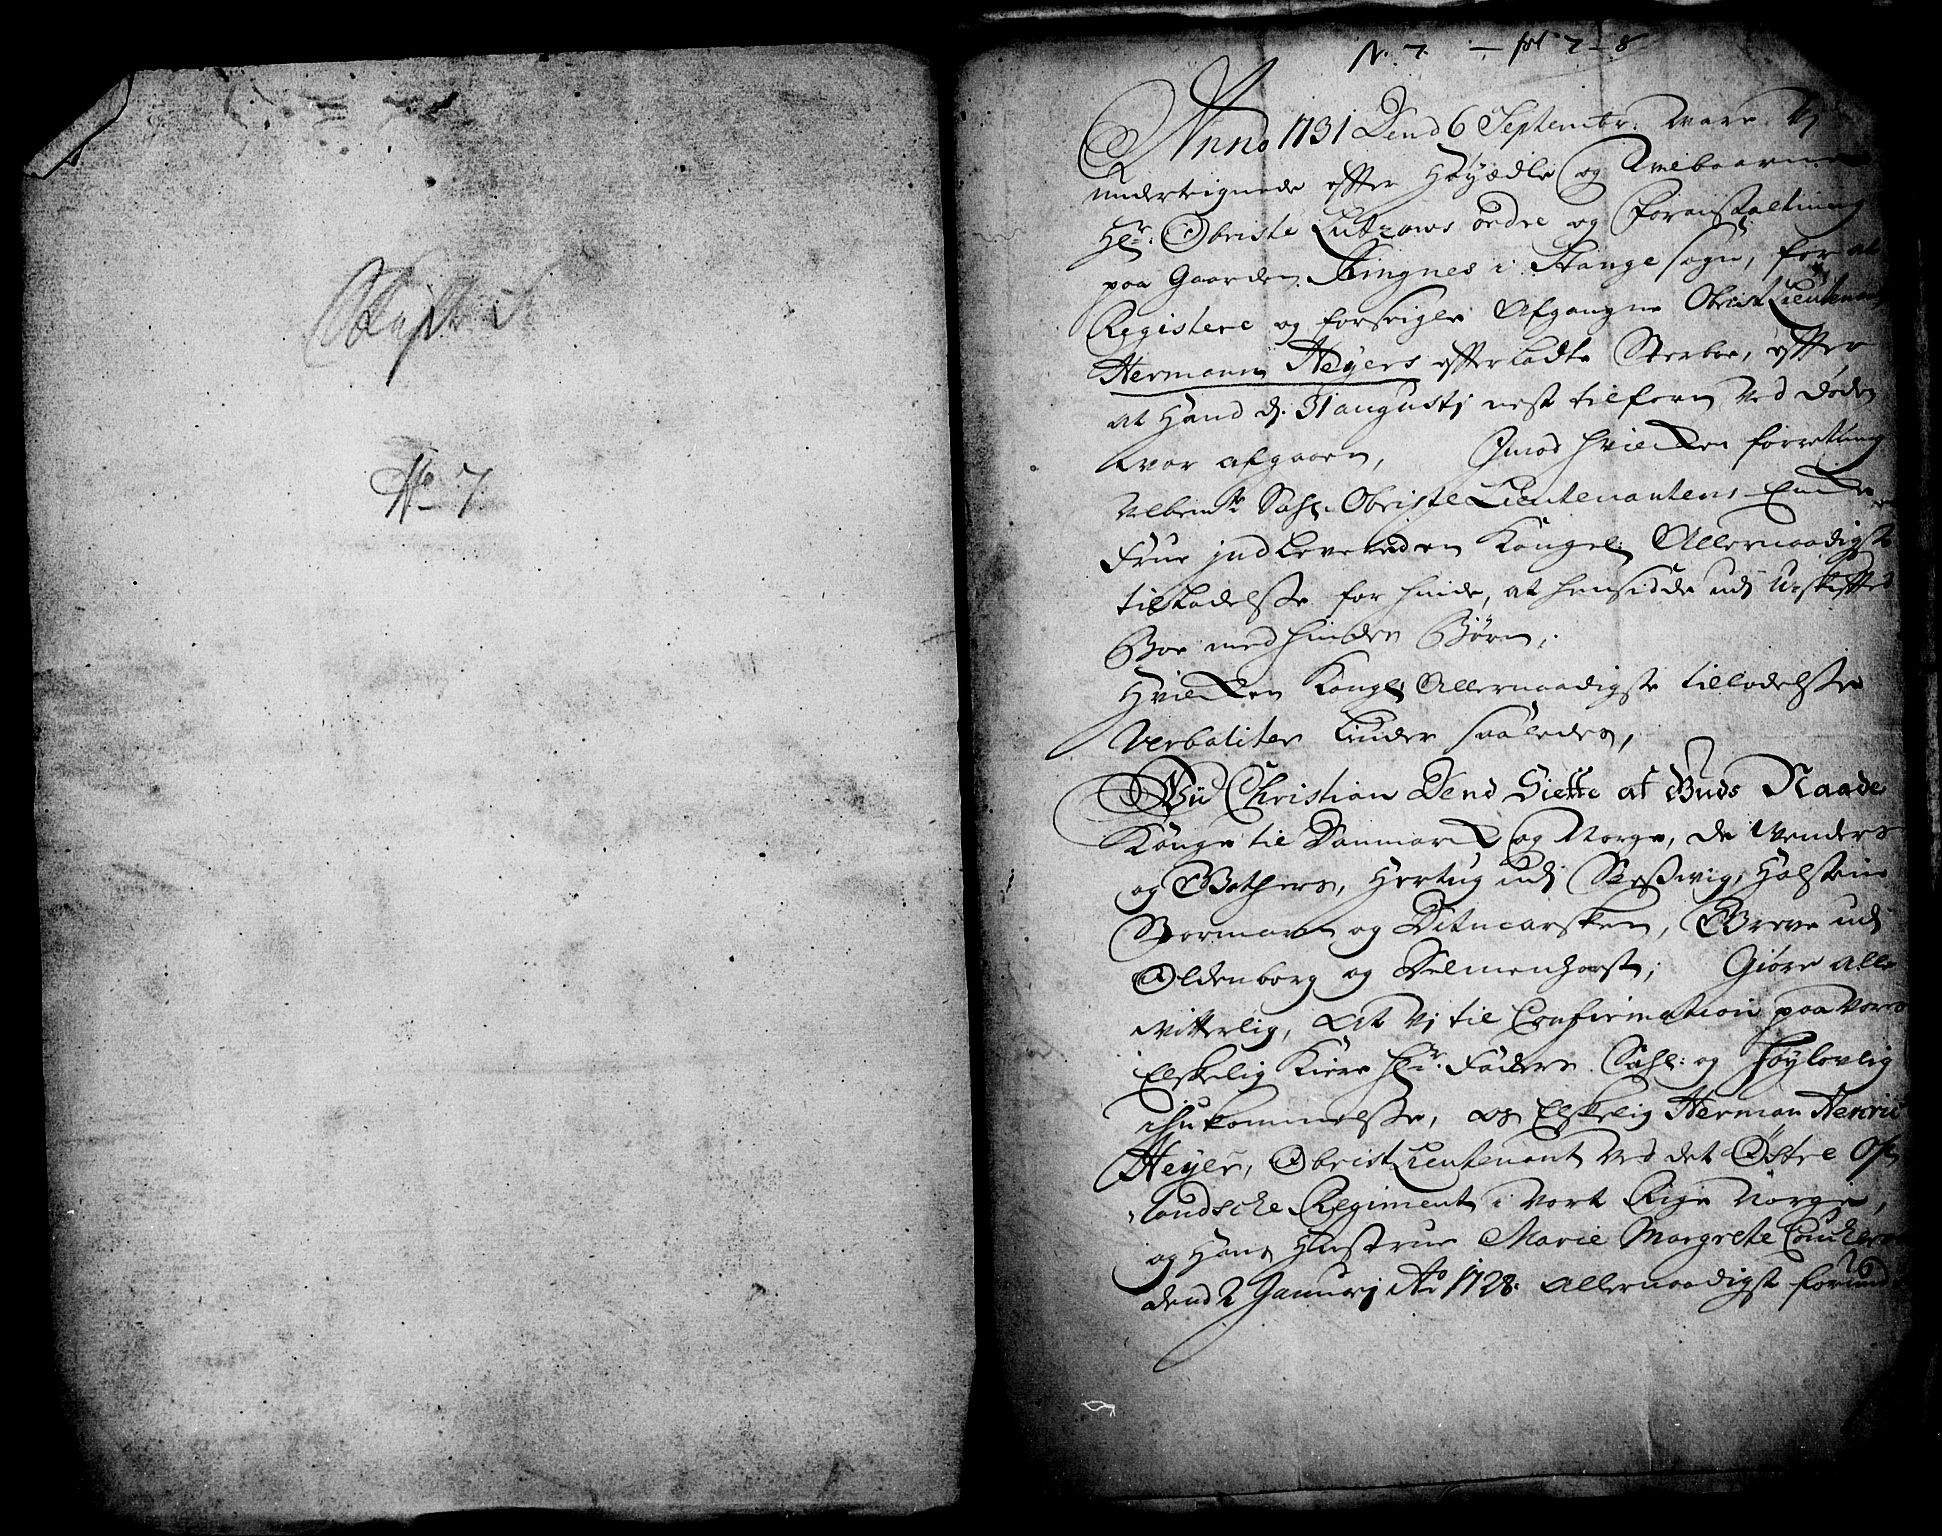 No 7
N. 7. — fol 7-8
Anno 1731 Dend 6 Septembr. ware Vj
underteignede efter Høyædle og Velbaarne
Hr. Obriste Lützows ordre og foranstaltning
paa Gaarden Ringnes i Stange sogn, for at
Registere og forseigle Afgangne ObristLieutenant
Hermann Heyers efterladte Sterboe, efter
at Hand d. 31 augustj nest tilforn ved døden
var afgaaen, Jmod hvilken forretning
velbemte Sahl. ObristeLieutenantens Encke
Frue jndleverede en Kongel: Allernaadigste
tilladelsse for hinde, at hensidde udj Uskiftet
Boe med hindes Børn,
Hvilken Kongl: Allernaadigste tilladelsse
Verbaliter liuder saaledes,
Wii Christian Dend Siette af Guds Naade
Konge til Danmark og Norge, de Wenders
og Gothers, Hertug udj Slesswig, Holsten
Stormarn og Ditmarsken, Greve udj
Oldenborg og Delmenhorst; Giøre alle
vitterlig, At Vj til Confirmation paa Vores
Elskelig Kiere Hr. Faders Sahl: og Høylovlig
ihukommelsse, os Elskelig Herman Henric
Heyer, ObristLieutenant ved det Østre Op-
landsche Regiment i Vort Rige Norge,
og Hans Hustrue Marie Margrete
dend 2 Januarj Ao 1728. allernaadigst forundte